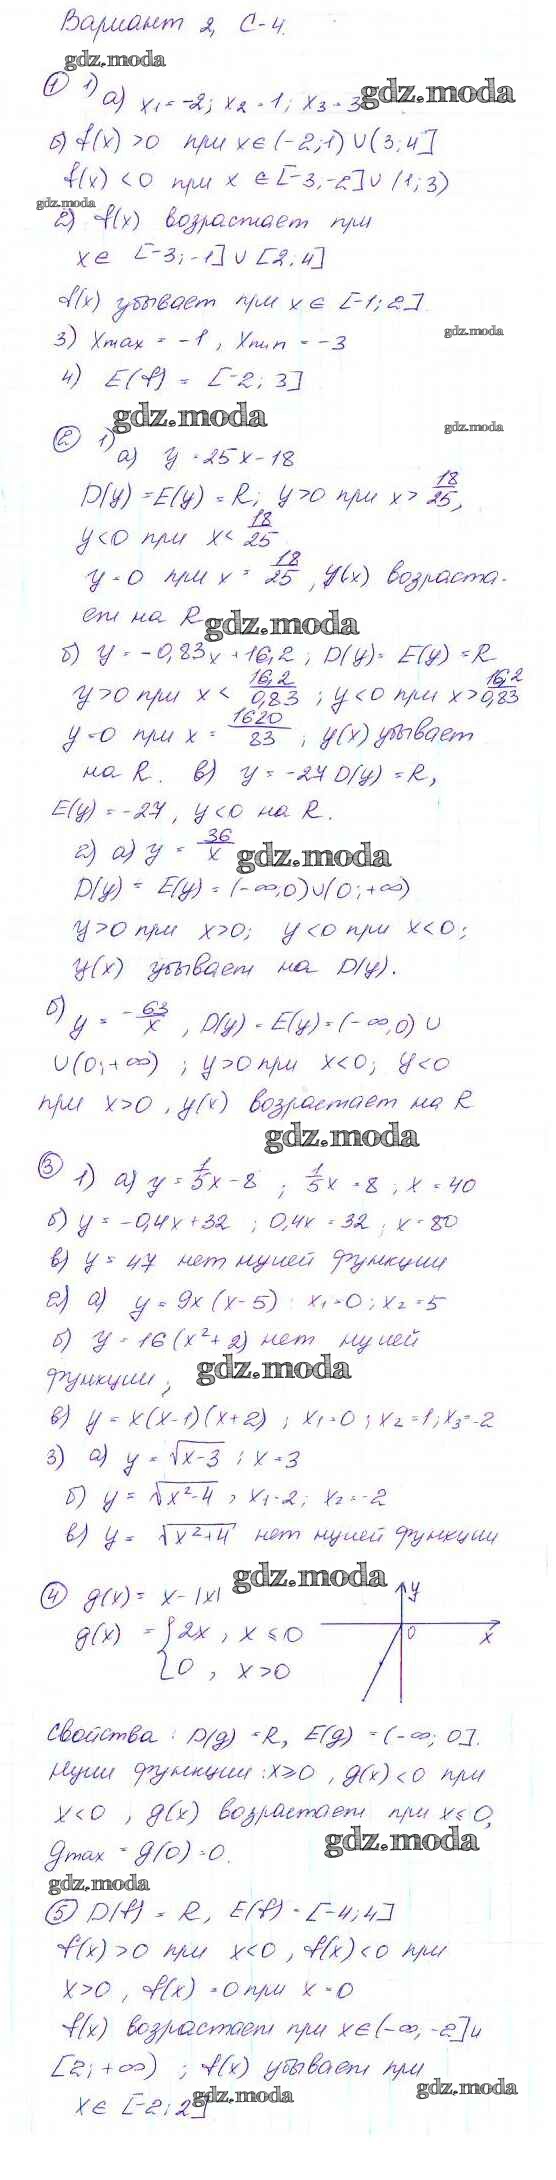 Вариант 2, С-4.
gdz.moda
① 1) а) x₁ = -2; x₂ = 1; x₃ = 3 gdz.moda
б) f(x) > 0 при x ∈ (-2; 1) ∪ (3; 4]
f(x) < 0 при x ∈ [-3; -2] ∪ (1; 3)
gdz.moda
2) f(x) возрастает при
x ∈ [-3; -1] ∪ [2; 4]
f(x) убывает при x ∈ [-1; 2].
3) Xmax = -1, Xmin = -3 gdz.moda
4) E(f) = [-2; 3]
gdz.moda gdz.moda
② 1) а) y = 25x - 18
D(y) = E(y) = R; y > 0 при x > 18/25,
y < 0 при x < 18/25
y = 0 при x = 18/25, y(x) возраста-
ет на R gdz.moda
б) y = -0,83x + 16,2; D(y) = E(y) = R
y > 0 при x < 16,2/0,83; y < 0 при x > 16,2/0,83
y = 0 при x = 1620/83; y(x) убывает
на R. в) y = -27 D(y) = R,
E(y) = -27, y < 0 на R.
2) а) y = 36/x gdz.moda
D(y) = E(y) = (-∞; 0) ∪ (0; +∞)
y > 0 при x > 0; y < 0 при x < 0;
y(x) убывает на D(y).
б) y = -63/x, D(y) = E(y) = (-∞, 0) ∪
∪ (0; +∞); y > 0 при x < 0; y < 0
при x > 0, y(x) возрастает на R
gdz.moda
③ 1) а) y = 1/5x - 8; 1/5x = 8, x = 40
б) y = -0,4x + 32; 0,4x = 32; x = 80
в) y = 47 нет нулей функции
2) а) y = 9x(x-5): x₁ = 0; x₂ = 5
б) y = 16(x² + 2) нет нулей
функции; gdz.moda
в) y = x(x-1)(x+2); x₁ = 0; x₂ = 1; x₃ = -2
3) а) y = √(x-3); x = 3
б) y = √(x²-4), x₁ = 2; x₂ = -2
в) y = √(x²+4) нет нулей функции
gdz.moda
④ g(x) = x - |x|
g(x) = { 2x, x ≤ 0
0, x > 0
y
0
x
Свойства: D(g) = R, E(g) = (-∞; 0].
Нули функции: x ≥ 0, g(x) < 0 при
x < 0, g(x) возрастает при x ≤ 0,
gmax = g(0) = 0. gdz.moda
gdz.moda
⑤ D(f) = R, E(f) = [-4; 4]
f(x) > 0 при x < 0, f(x) < 0 при
x > 0, f(x) = 0 при x = 0
f(x) возрастает при x ∈ (-∞, -2] и
[2; +∞); f(x) убывает при
x ∈ [-2; 2] gdz.moda gdz.moda